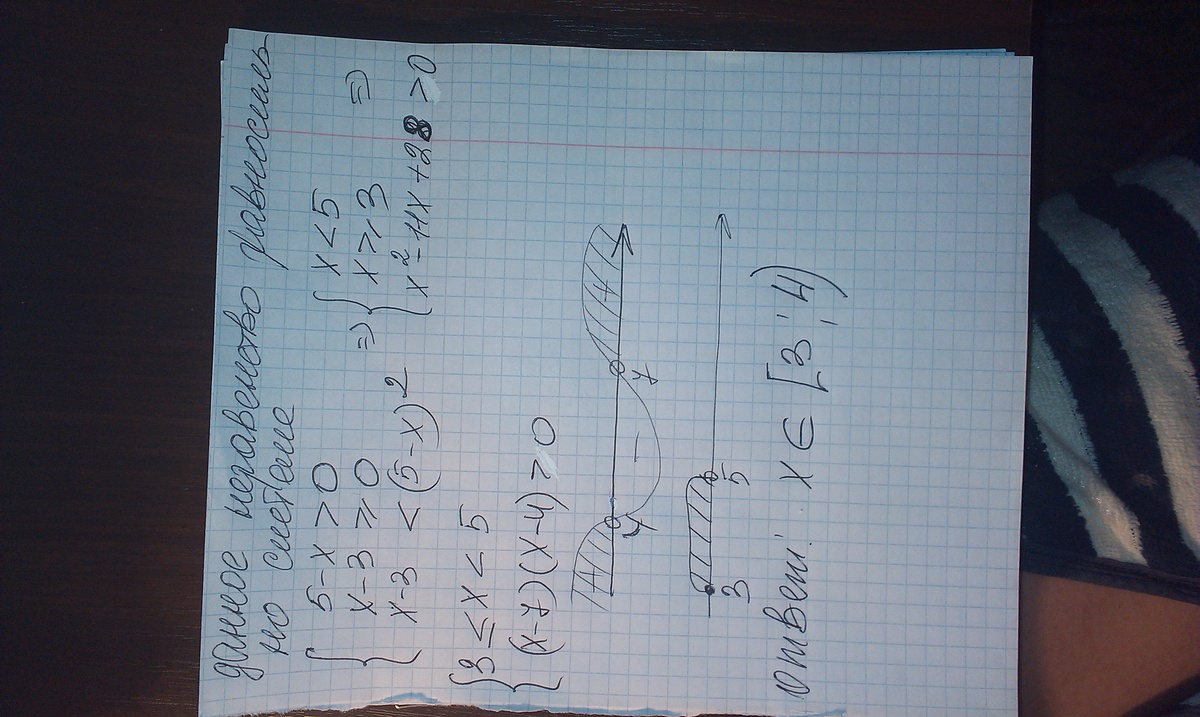 данное неравенство равносиль
но системе
{ 5-x > 0 => { x < 5
x-3 ≥ 0 x ≥ 3 =>
x-3 < (5-x)² x² - 11x + 28 > 0
{ 3 ≤ x < 5
(x-7)(x-4) > 0
+ - +
4 7
3 5
ответ: x ∈ [3; 4)